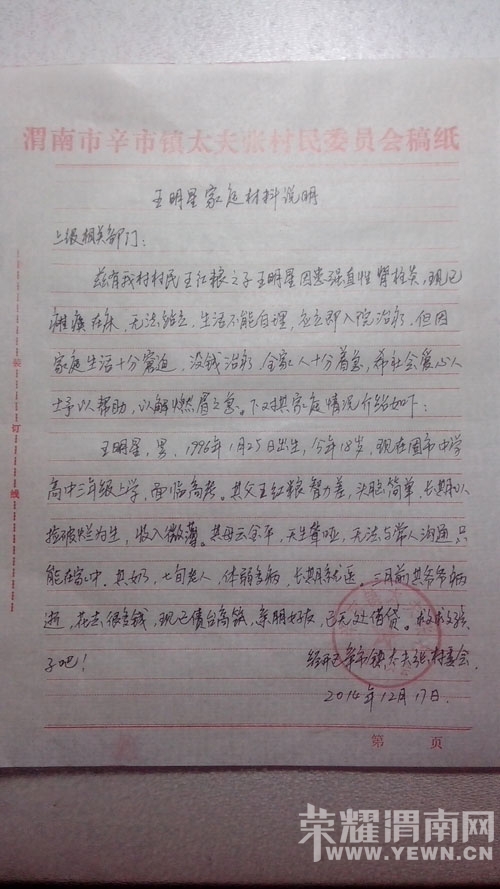 渭南市辛市镇太夫张村民委员会稿纸
王明星家庭材料说明
上级相关部门：
兹有我村村民王红粮之子王明星因患强直性脊柱炎，现已
瘫痪在床，无法站立，生活不能自理，应立即入院治疗，但因
家庭生活十分窘迫，没钱治疗，全家人十分着急，希社会爱心人
士予以帮助，以解燃眉之急。下文对其家庭情况介绍如下：
王明星，男，1996年1月25日出生，今年18岁，现在固市中学
高中三年级上学，面临高考。其父王红粮智力差，头脑简单，长期以
捡破烂为生，收入微薄。其母云全平，天生聋哑，无法与常人沟通，只
能在家中。其奶，七旬老人，体弱多病，长期就医。三月前其爷爷病
逝，花去很多钱，现已债台高筑，亲朋好友，已无处借贷。救救孩
子吧！
经开区辛市镇太夫张村委会
2014年12月17日.
装
订
线
第 页
荣耀渭南网
WWW.YEWN.CN